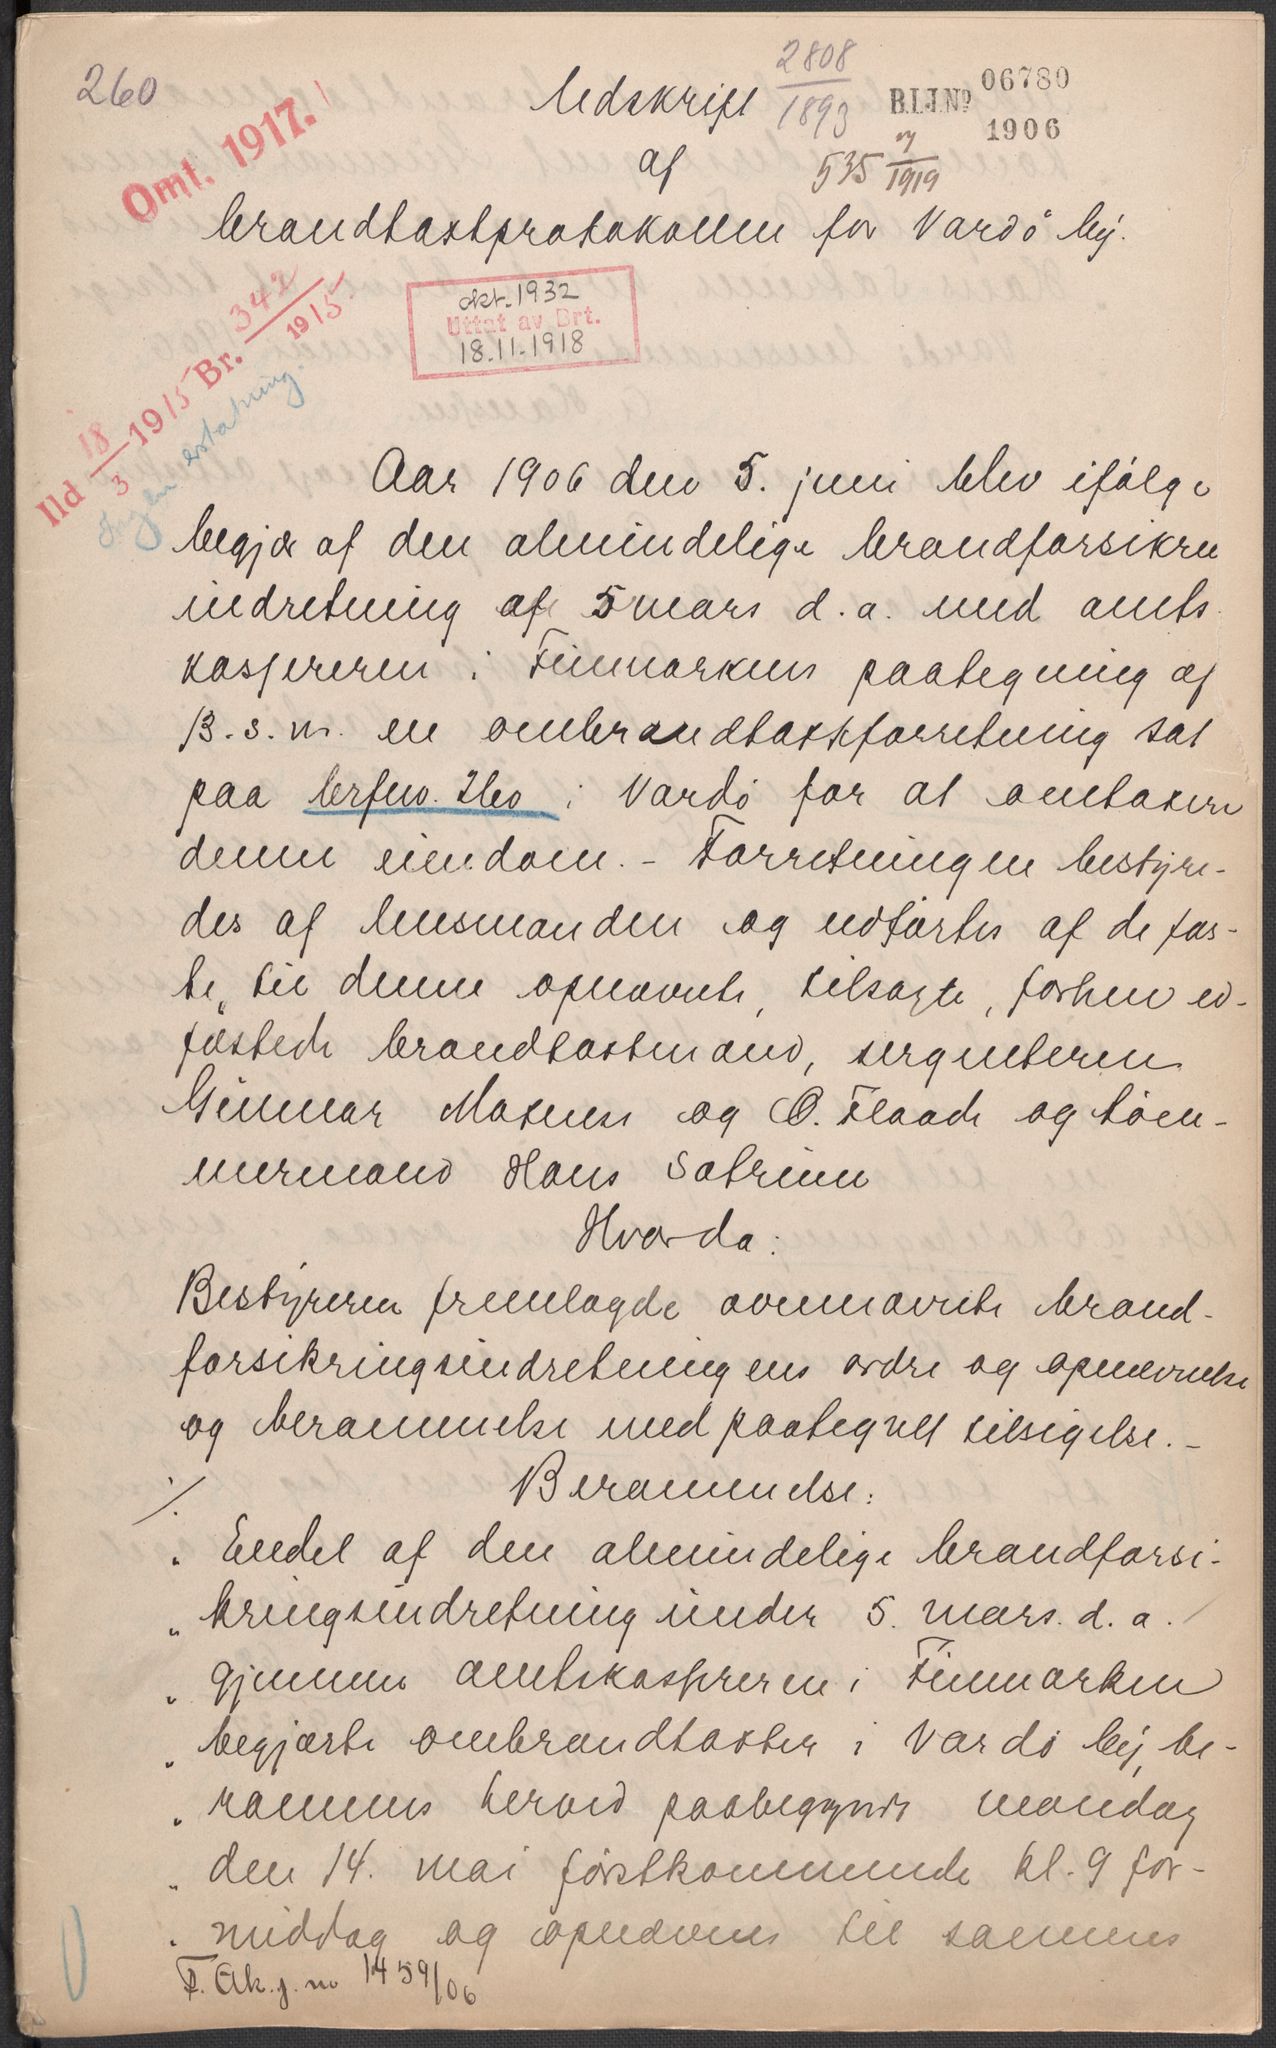 260
2808
1893
B.L.J.Nº 06780
1906
535 1919
Omt. 1917.
Udskrift
af
brandtaxtprotokollen for Vardö by.
Br. 342
1915
Ild 18/3 1915
Ingen erstatning.
okt. 1932
Uttat av Brt.
18.11.1918
Aar 1906 den 5. juni blev ifölge
begjær af den almindelige brandforsikrin
indretning af 5 mars d.a. med amts
kasserern i Finmarkens paategning af
13. s. m. en ombrandtaxtforretning sat
paa i Vardö for at omtaxere
denne eiendom. - Forretningen bestyre-
des af lensmanden og udförtes af de fas-
te, til denne opnævnte, tilsagte, forhen ed-
fæstede brandtaxtmænd,
Maxness og O. Flaade og töm-
mermand Hans Satrinn
Hvorda:
Bestyreren fremlagde ovennævnte brand-
forsikringsindretningens ordre og opnævnelse
og berammelse med paategnet tilsigelse. -
./.
Berammelse:
" Endel af den almindelige brandforsi-
" kringsindretning under 5. mars. d. a.
" gjennem amtskassereren i Finmarken
" begjærte ombrandtaxter i Vardö by, be-
" rammes herved paabegyndt mandag
" den 14. mai förstkommende kl. 9 for-
" middag og opnævnes til sammes
F. Ak. j. no 1459/06